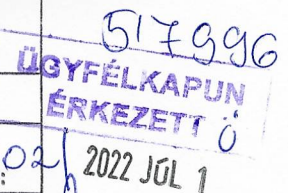 517996
ÜGYFÉLKAPUN
ÉRKEZETT Ö
02h 2022 JÚL 1